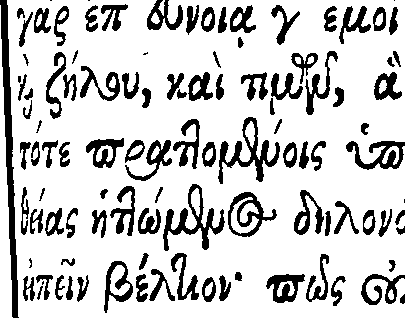 γὰρ ἐπ' εὐνοίᾳ γ' ἐμοὶ
καὶ ζήλου, καὶ ἃ
τότε πραττομένοις ὑπ
θείας ἡττώμενος δηλονό
εἰπεῖν βέλτιον· πῶς οὐ